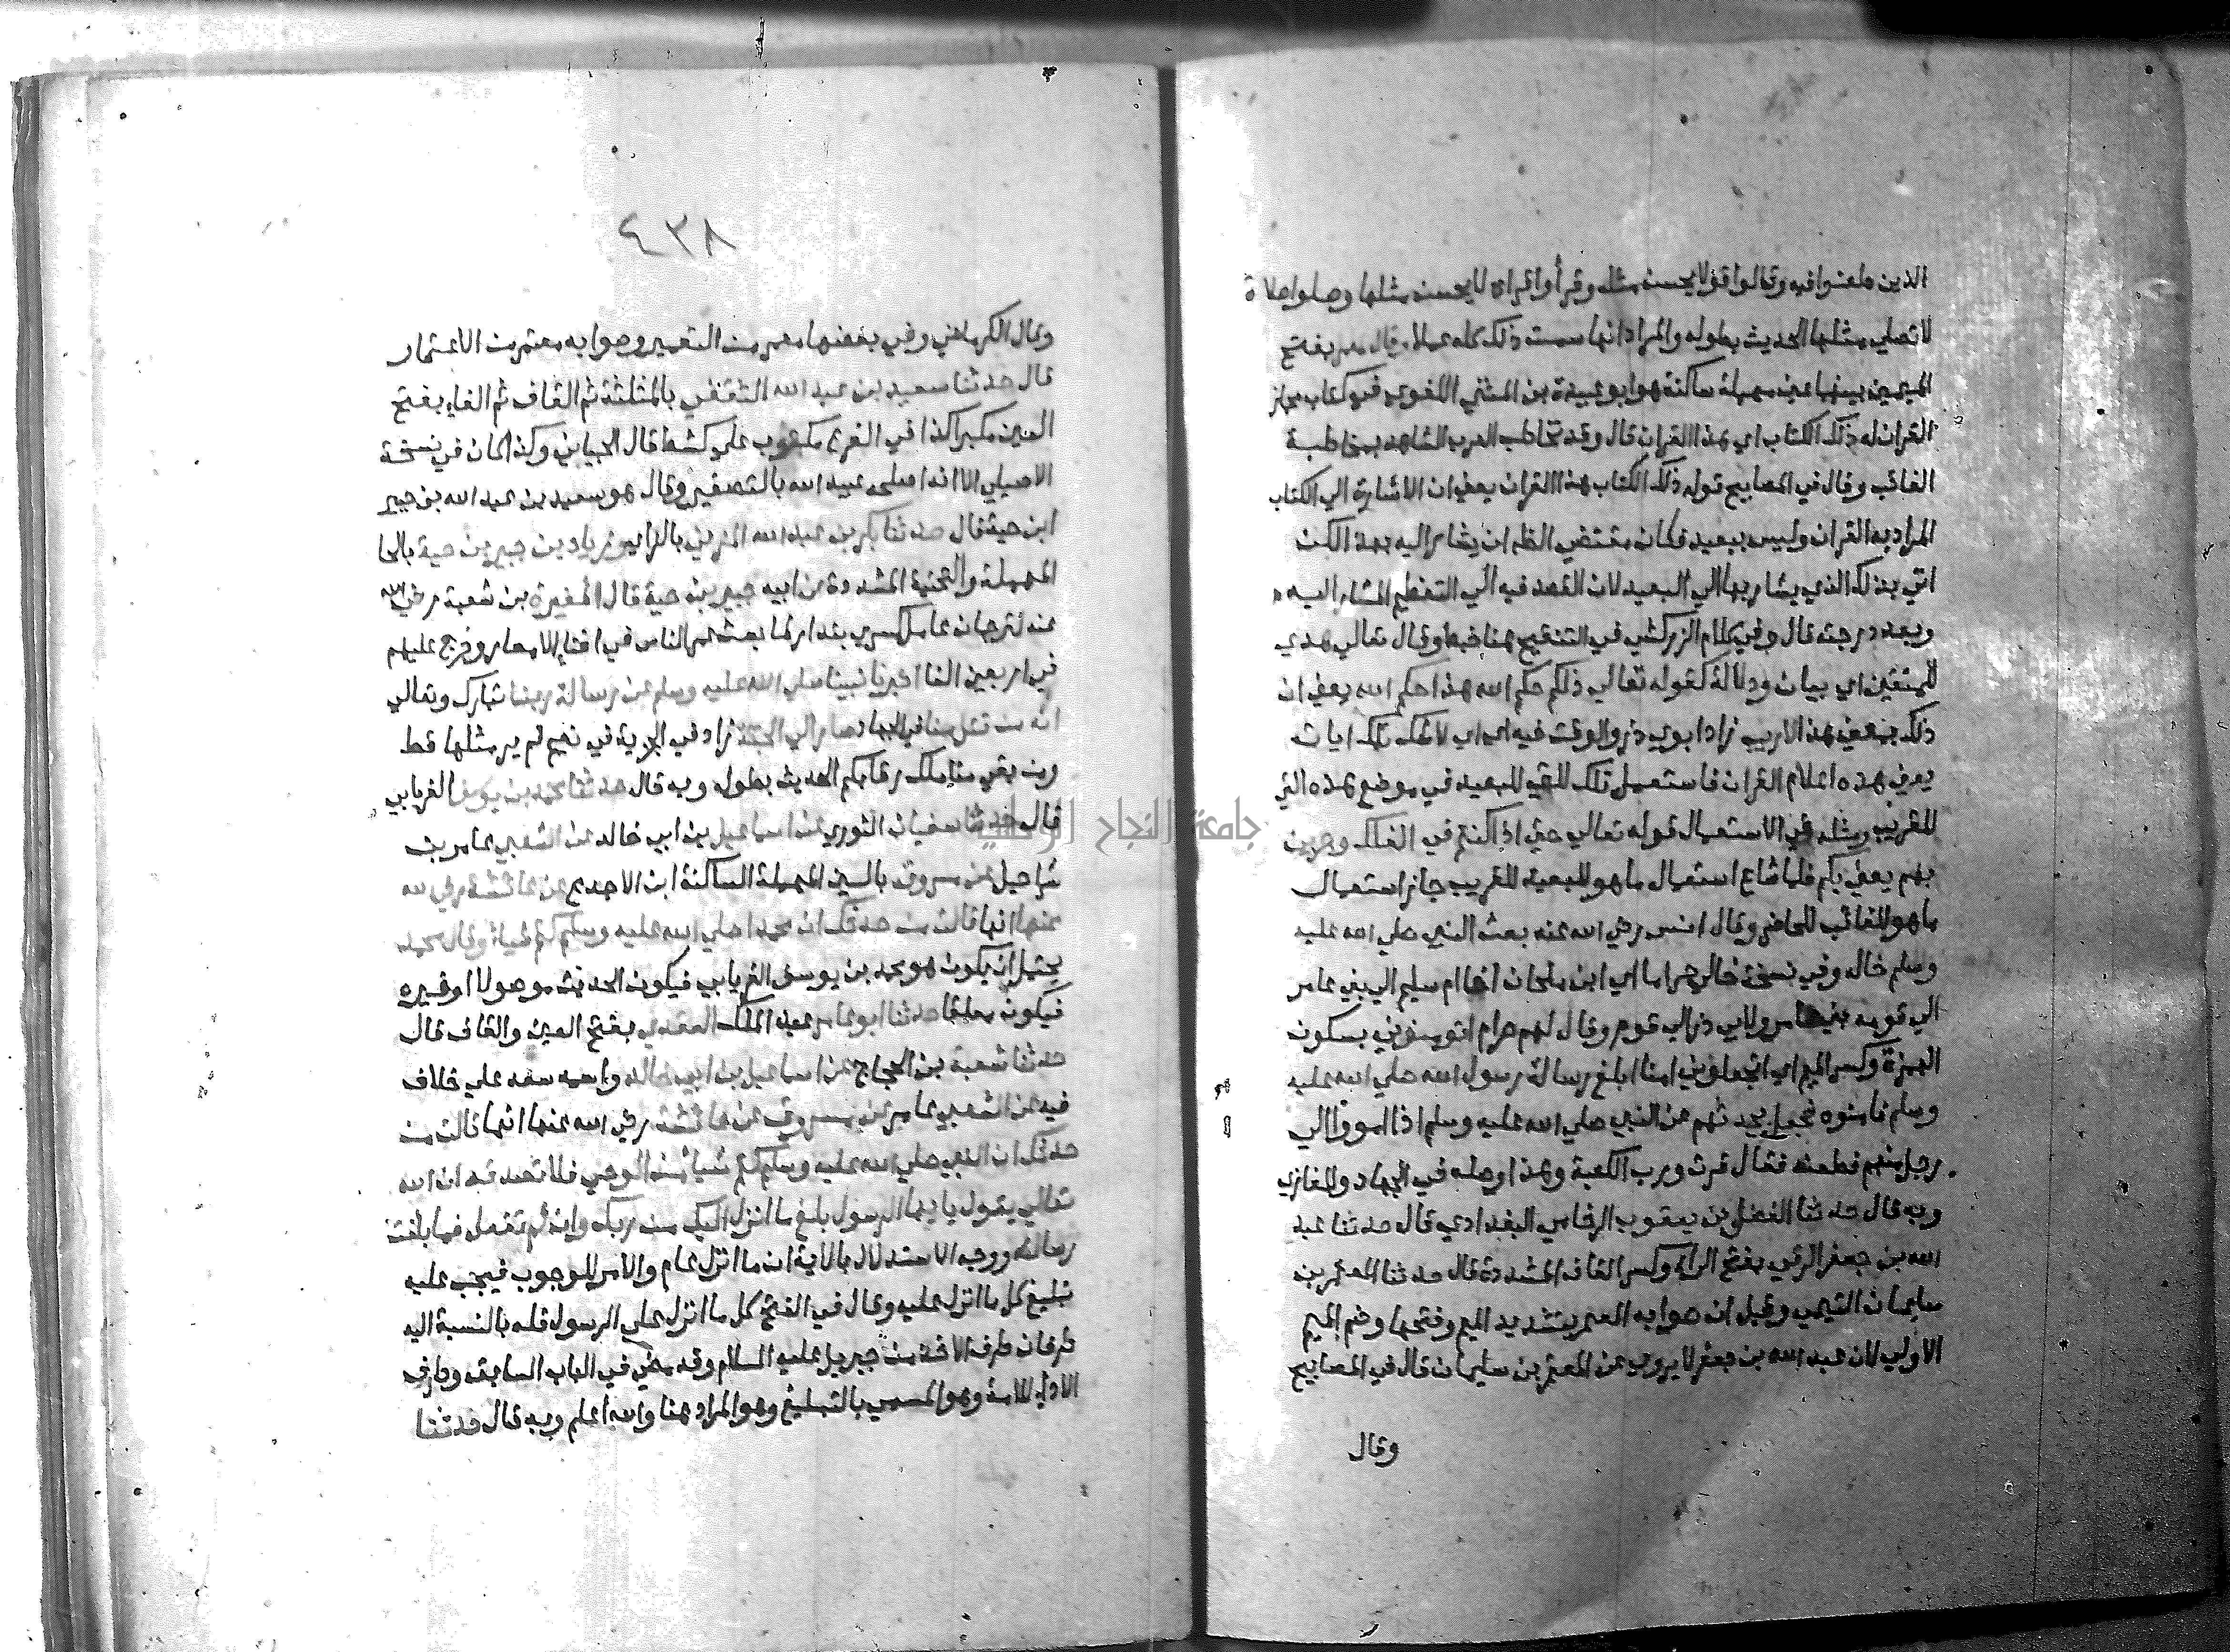 الذين طعنوا فيه وقالوا قولا لا يحسن مثله وقرأوا قراة لا يحسن مثلها وصلوا صلاة
لا تصلي مثلها الحديث بطوله والمراد انها سمت ذلك كله عملا وقال معمر بفتح
الميمين بينهما عين مهملة ساكنة هو ابو عبيدة بن المثني اللغوي في كتاب مجاز
القران له ذلك الكتاب اي هذا القران قال وقد تخاطب العرب الشاهد بمخاطبة
الغائب وقال في المصابيح قوله ذلك الكتاب هذا القران يعني ان الاشارة الي الكتاب
المراد به القران وليس ببعيد فكان مقتضي الظاهر ان يشار اليه بهذا لكن
اتي بذلك الذي يشار بها الي البعيد لان القصد فيه الي التعظيم المشار اليه
وبعد درجته قال وفي كلام الزركشي في التنقيح هنا خبط وقال تعالي هدي
للمتقين اي بيان ودلالة كقوله تعالي ذلكم حكم الله هذا حكم الله يعني ان
ذلك بمعني هذا لا ريب زاد ابوي ذر والوقت فيه اي لا شك تلك ايات
يعني هذه اعلام القران فاستعمل تلك التي للبعيد في موضع هذه التي
للقريب ومثله في الاستعمال قوله تعالي حتي اذا كنتم في الفلك وجرين
بهم يعني بكم فلما شاع استعمال ما هو للبعيد للقريب جاز استعمال
ما هو للغائب للحاضر وقال انس رضي الله عنه بعث النبي صلي الله عليه
وسلم خاله وفي نسخة خالي حراما اي ابن ملحان اخا ام سليم الي بني عامر
الي قومه بني عامر ولابي ذر الي قوم وقال لهم حرام اتومنوني بسكون
الهمزة وكسر الميم اي اتجعلوني امنا ابلغ رسالة رسول الله صلي الله عليه
وسلم فامنوه فجعل يحدثهم عن النبي صلي الله عليه وسلم اذ اومووا الي
رجل منهم فطعنه فقال فزت ورب الكعبة وهذا وصله في الجهاد والمغازي
وبه قال حدثنا الفضل بن يعقوب الرخامي البغدادي قال حدثنا عبد
الله بن جعفر الرقي بفتح الراء وكسر القاف المشددة قال حدثنا المعتمر بن
سليمان التيمي وقيل ان صوابه المعمر بتشديد الميم وفتحها وضم الميم
الاولي لان عبد الله بن جعفر لا يروي عن المعتمر بن سليمان قال في المصابيح
وقال
٤٣٨
وقال الكرماني وفي بعضها معمر من التعمير وصوابه معتمر من الاعتمار
قال حدثنا سعيد بن عبد الله الثقفي بالمثلثة ثم القاف ثم الفاء بفتح
العين مكبرا كذا في الفرع مكتوب علي كشط قال الجياني وكذا كان في نسخة
الاصيلي الا انه اصلحه عبيد الله بالتصغير وقال هو سعيد بن عبيد الله بن جبير
ابن حية قال حدثنا بكر بن عبد الله المزني بالزاي وزياد بن جبير بن حية بالحا
المهملة والتحتية المشددة عن ابيه جبير بن حية قال المغيرة بن شعبة رضي الله
عنه لترجمان عامل كسري بندار لما بعث عمر الناس في افناء الامصار وخرج عليهم
في اربعين الفا اخبرنا نبينا صلي الله عليه وسلم عن رسالة ربنا تبارك وتعالي
انه من قتل منا في الجهاد صار الي الجنة زاد في الجزية في نعيم لم ير مثلها قط
ومن بقي منا ملك رقابكم الحديث بطوله وبه قال حدثنا محمد بن يوسف الفريابي
قال حدثنا سفيان الثوري عن اسماعيل بن ابي خالد عن الشعبي عامر بن
شراحيل عن مسروق بالسين المهملة الساكنة ابن الاجدع عن عائشة رضي الله
عنها انها قالت من حدثك ان محمدا صلي الله عليه وسلم كتم شيا وقال محمد
يحتمل ان يكون هو محمد بن يوسف الفريابي فيكون الحديث موصولا او غيره
فيكون معلقا حدثنا ابو عامر عبد الملك العقدي بفتح العين والقاف قال
حدثنا شعبة بن الحجاج عن اسماعيل بن ابي خالد واسمه سعد علي خلاف
فيه عن الشعبي عامر عن مسروق عن عائشة رضي الله عنها انها قالت من
حدثك ان النبي صلي الله عليه وسلم كتم شيا من الوحي فلا تصدقه ان الله
تعالي يقول يا ايها الرسول بلغ ما انزل اليك من ربك وان لم تفعل فما بلغت
رسالته ووجه الاستدلال بالاية ان ما انزل عام والامر للوجوب فيجب عليه
تبليغ كل ما انزل عليه وقال في الفتح كل ما انزل علي الرسول فله بالنسبة اليه
طرفان طرف الاخذ من جبريل عليه السلام وقد مضي في الباب السابق وطرف
الاداء للامة وهو المسمي بالتبليغ وهو المراد هنا والله اعلم وبه قال حدثنا
جامعة النجاح الوطنية